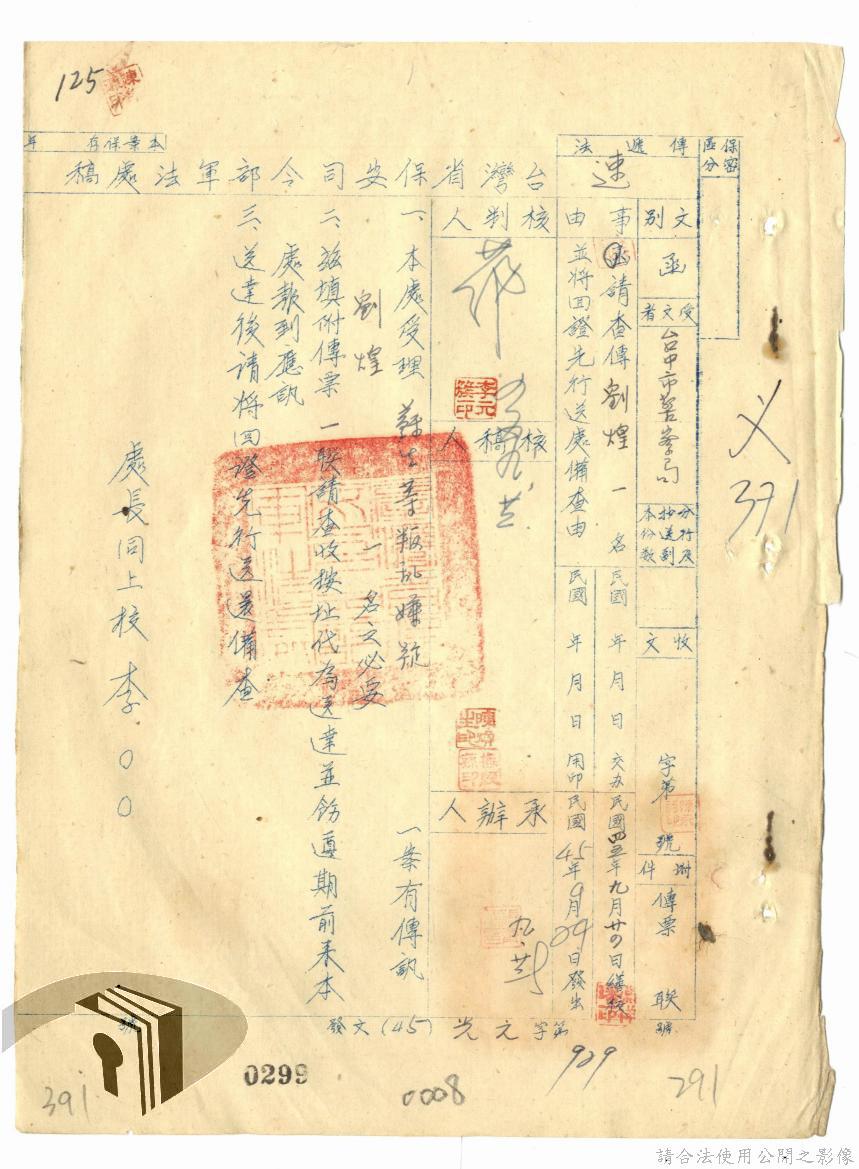 125
保密區分
傳遞法
速
本案保存 年
台灣省保安司令部軍法處稿
文別
函
受文者
台中市警察局
分行及抄送副本份數
收文
字第 號
附件
傳票 聯
事由
函請查傳劉煌一名
並將回證先行送處備查由
民國 年 月 日 交办
民國四五年九月廿四日繕校
民國 年 月 日 用印
民國45年9月29日發出
核判人
李元簇印
核稿人
承辦人
一、本處受理 蘇生等叛亂嫌疑 一案有傳訊
劉煌 一名之必要
二、茲填附傳票一聯請查收按址代為送達並飭遵期前來本
處報到應訊
三、送達後請將回證先行送還備查
處長同上校李〇〇
發文(45)光元字第 929 號
號
义
371
391
0299
0008
291
請合法使用公開之影像